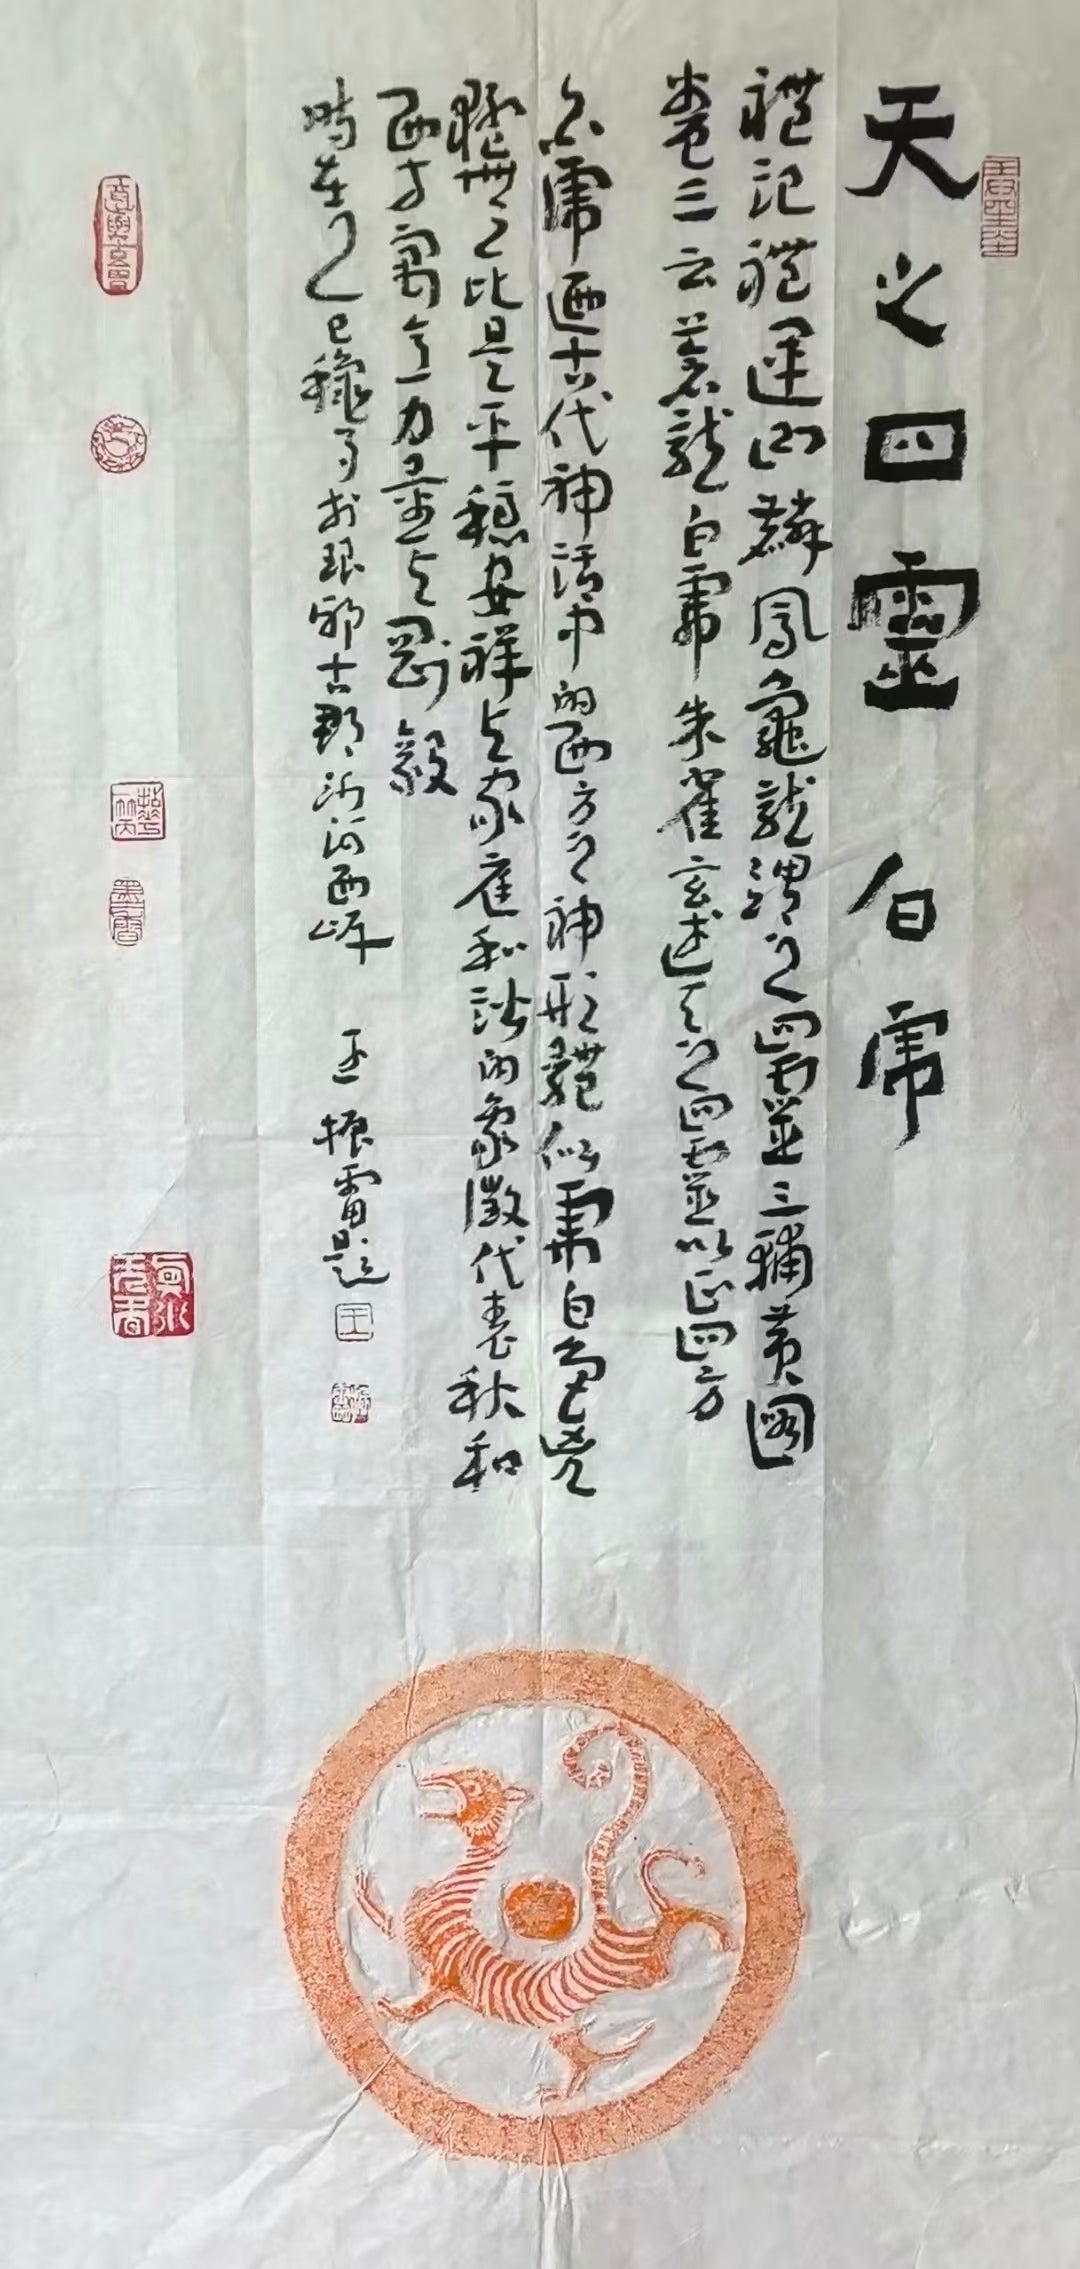 天之四靈 白虎
禮記禮運曰麟鳳龜龍謂之四靈三輔黃圖
卷三云蒼龍白虎朱雀玄武天之四靈以正四方
白虎迺古代神話中的西方之神形體似虎白色兇
猛無比是平穩安祥与家庭和諧的象徵代表秋和
西方寓意力量与剛毅
時在乙巳穐月於琅邪古郡沂河西岸 王振雷題
王